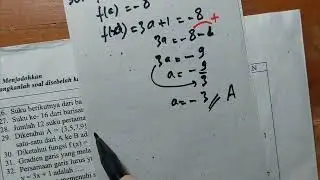 f(a) = -8
f(a) = 3a+1 = -8
3a = -8-1
3a = -9
a = -9/3
a = -3 // A
Menjodohkan
angkanlah soal disebelah k
26. Suku berikutnya dari ba
27. Suku ke- 16 dari barisan
28. Jumlah 12 suku pertama
29. Diketahui A = {3,5,7,9
satu-satu dari A ke B ad
30. Diketahui fungsi f(x) =
31. Gradien garis yang mela
32. Persamaan garis lurus y
y = 3x + 1 adalah ....
memenuhi s
N